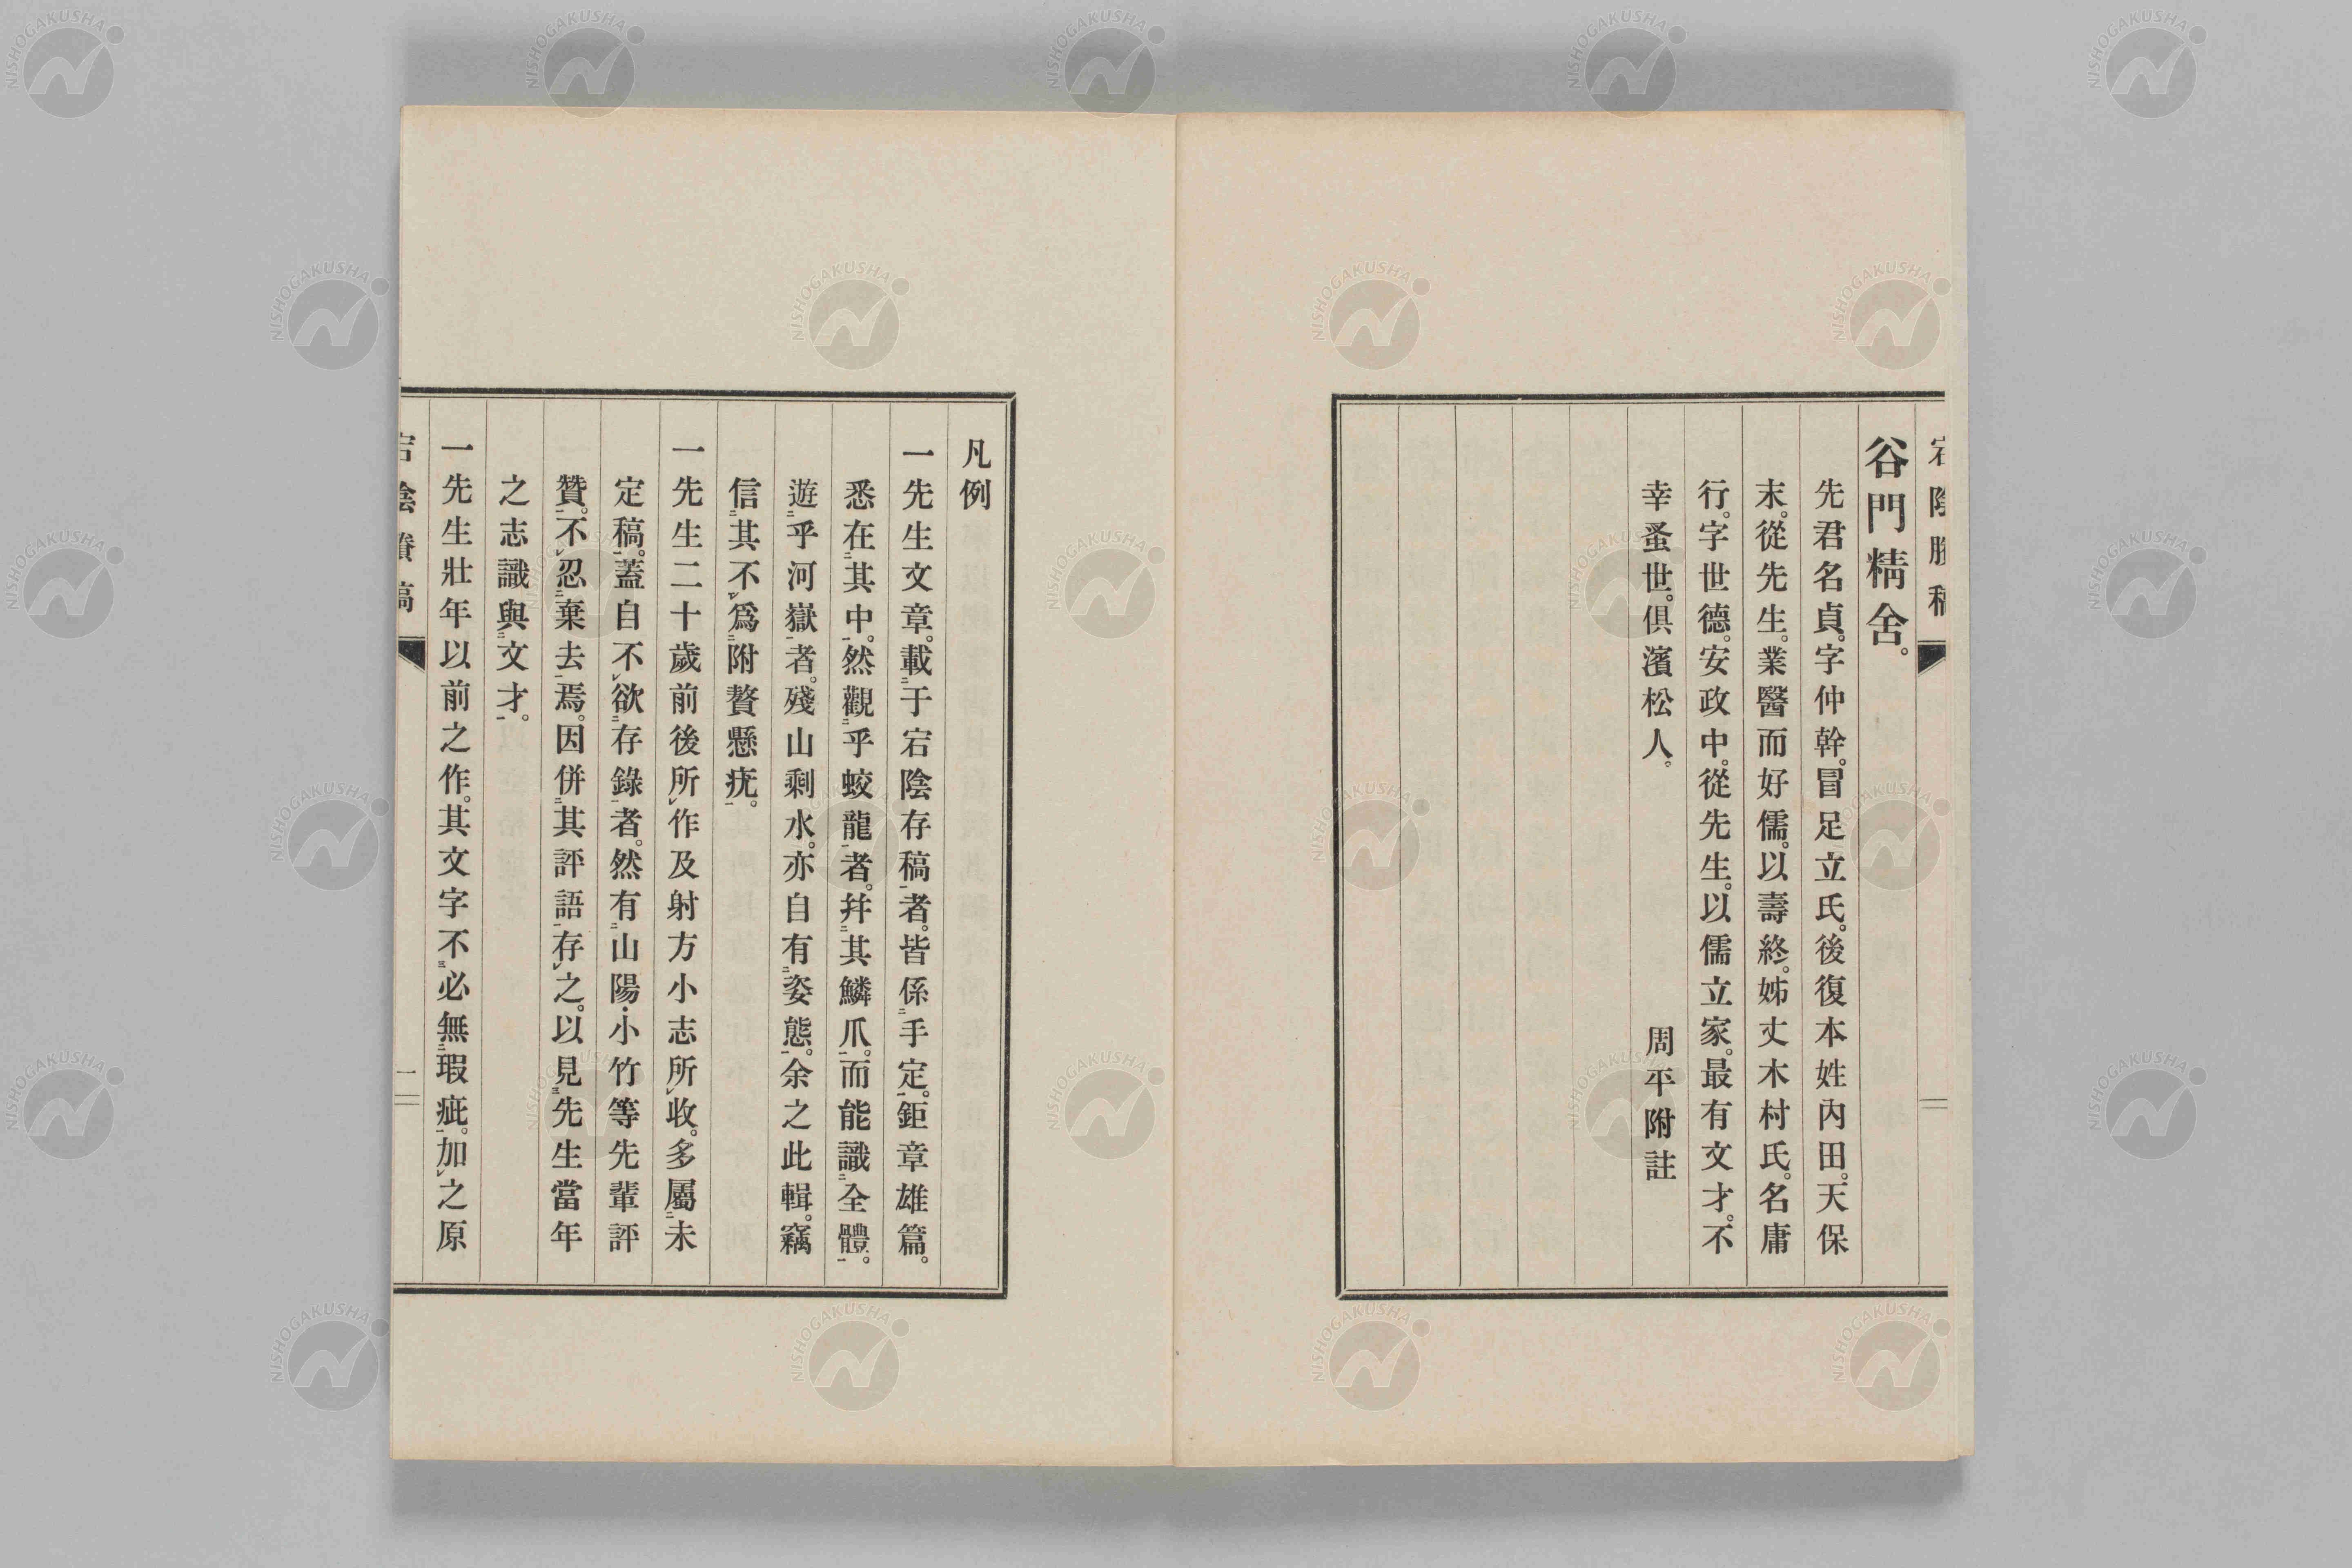 谷門精舍。
先君名貞。字仲幹。冒足立氏。後復本姓內田。天保
末。從先生。業醫而好儒。以壽終。姊丈木村氏。名庸
行。字世德。安政中。從先生。以儒立家。最有文才。不
幸蚤世。俱濱松人。
周平附註
凡例
一先生文章。載二于宕陰存稿一者。皆係二手定一。鉅章雄篇。
悉在二其中一。然觀二乎蛟龍一者。幷二其鱗爪一。而能識二全體一。
遊二乎河嶽一者。殘山剩水。亦自有二姿態一。余之此輯。竊
信二其不レ爲二附贅懸疣一。
一先生二十歲前後所レ作及射方小志所レ收。多屬二未
定稿一。蓋自不レ欲二存錄一者。然有二山陽・小竹等先輩評
贊一。不レ忍二棄去一焉。因併二其評語一存レ之。以見三先生當年
之志識與二文才一。
一先生壯年以前之作。其文字不三必無二瑕疵一。加レ之原
宕陰賸稿
一